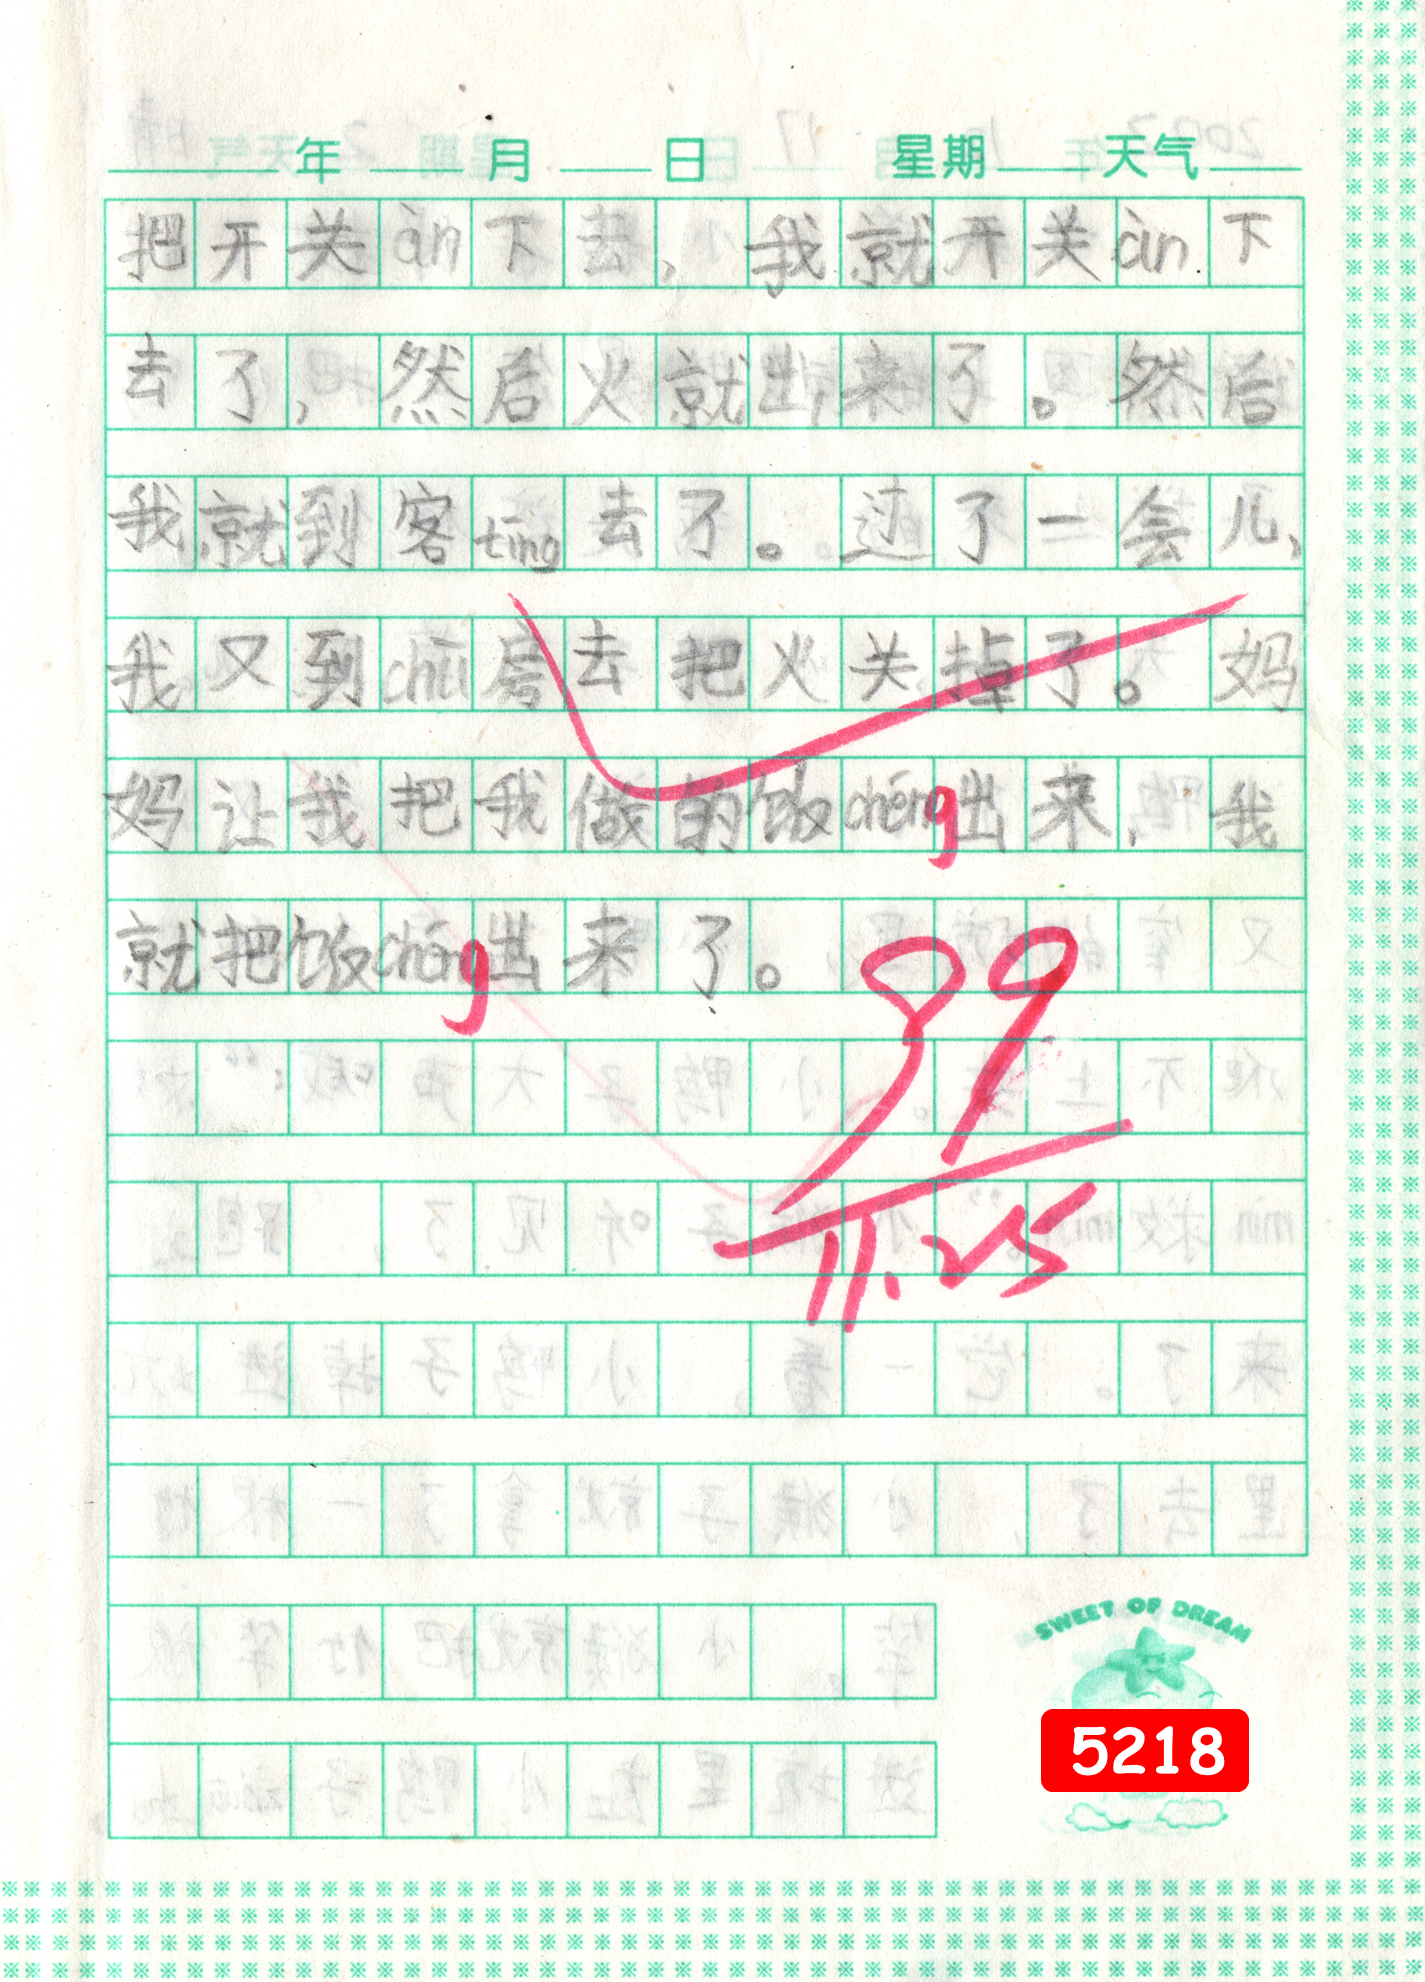 年 月 日 星期 天气
把开关àn下去，我就开关àn下
去了，然后火就出来了。然后
我就到客tīng去了。过了一会儿，
我又到chú房去把火关掉了。妈
妈让我把我做的饭chéng出来，我
就把饭chéng出来了。
99
11.25
SWEET OF DREAM
5218